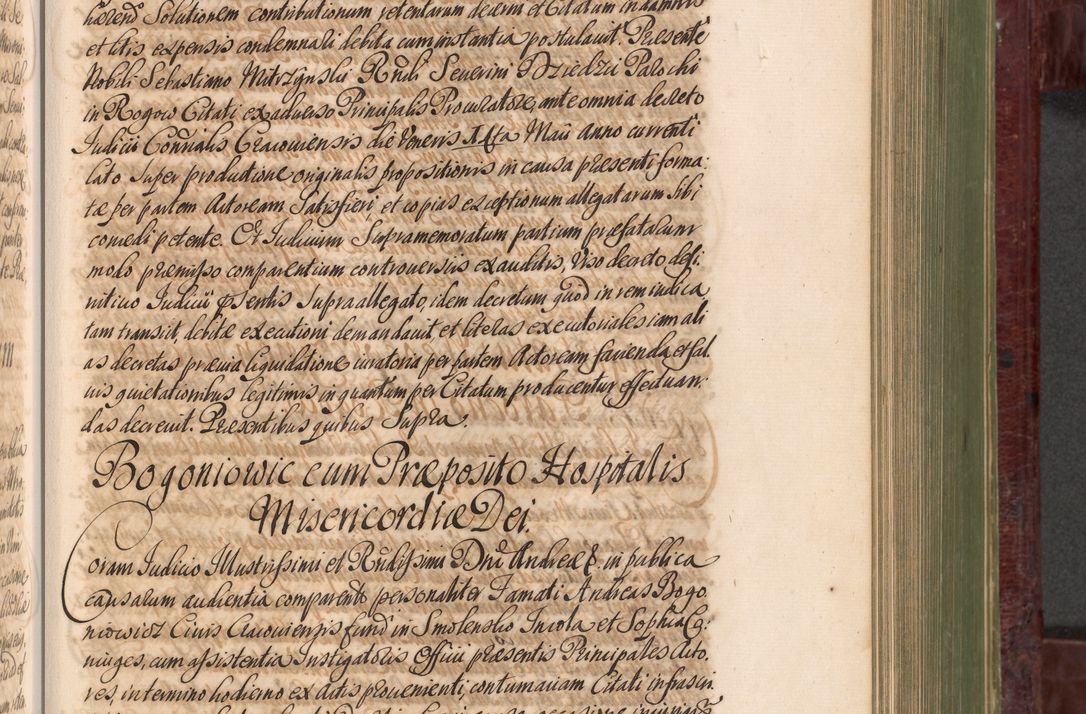 hærend Solutionem contributionum retentarum decerni et Citatum in damnis
et litis expensis condemnari debita cum instantia postulavit. Præsente
Nobili Sebastiano Mitrzynski Rñdi Severini Dziedzic Parochi
in Rogow Citati ex adverso Principalis Procuratore, ante omnia decreto
Judicii Consrialis Cracoviensis die Veneris Maii Anno currenti
lato super productione originalis propositionis in causa præsenti forma-
tæ per partem Actoream Satisfieri, et copias exceptionum allegatarum sibi
concedi petente. Et Judicium Supramemoratum partium præfatarum
modo præmisso comparentium controversiis exauditis, viso decreto defi-
nitivo Judicii pr̃sentis supraallegato, idem decretum quod in rem iudica
tam transiit, debitæ executioni demandavit, et literas executoriales iam ali
as decretas prævia liquidatione iuratoria per partem Actoream facienda, et sal
vis quietationibus legitimis in quantum per Citatum producentur effectuan-
das decrevit. Præsentibus quibus Supra.
Bogoniowic cum Præposito Hospitalis
Misericordiæ Dei.
Coram Judicio Illustrissimi et Rñdissimi Dñi Andreæ &. in publica
causarum audientia comparentes personaliter Famati Andreas Bogo-
niowicz Civis Cracoviensis fund in Smolensko Incola et Sophia Co-
niuges, cum assistentia Instigatoris Officii præsentis Principales Acto-
res, in termino hodierno ex citatis provenienti, contumaciam Citati infrascri